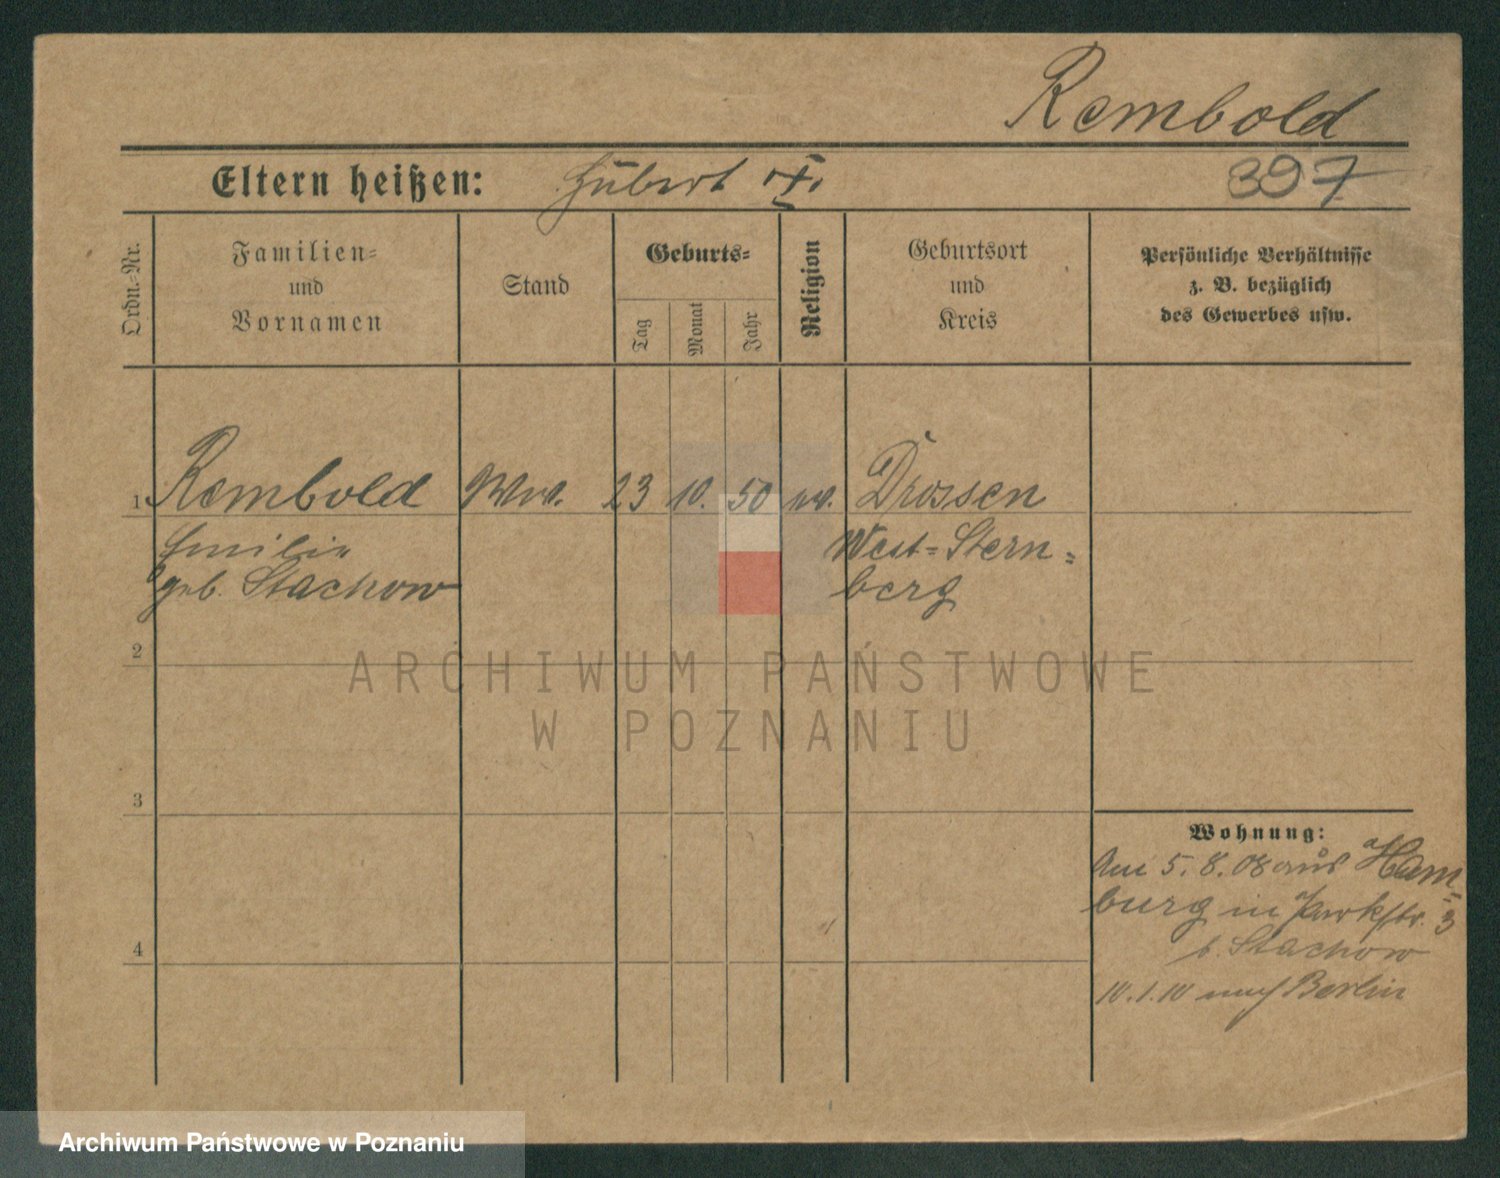 Rembold
Eltern heißen: Hubert
397
Ordn.-Nr.
Familien-
und
Vornamen
Stand
Geburts-
Tag
Monat
Jahr
Religion
Geburtsort
und
Kreis
Persönliche Verhältnisse
z. B. bezüglich
des Gewerbes usw.
1 Rembold Ww. 23 10. 50 ev. Drossen
Emilie West-Stern-
geb. Stachow berg
2
ARCHIWUM PAŃSTWOWE
W POZNANIU
3
4
Wohnung:
Am 5. 8. 08 aus Ham-
burg in Parkstr. 3
b. Stachow
10. 1. 10 nach Berlin
Archiwum Państwowe w Poznaniu